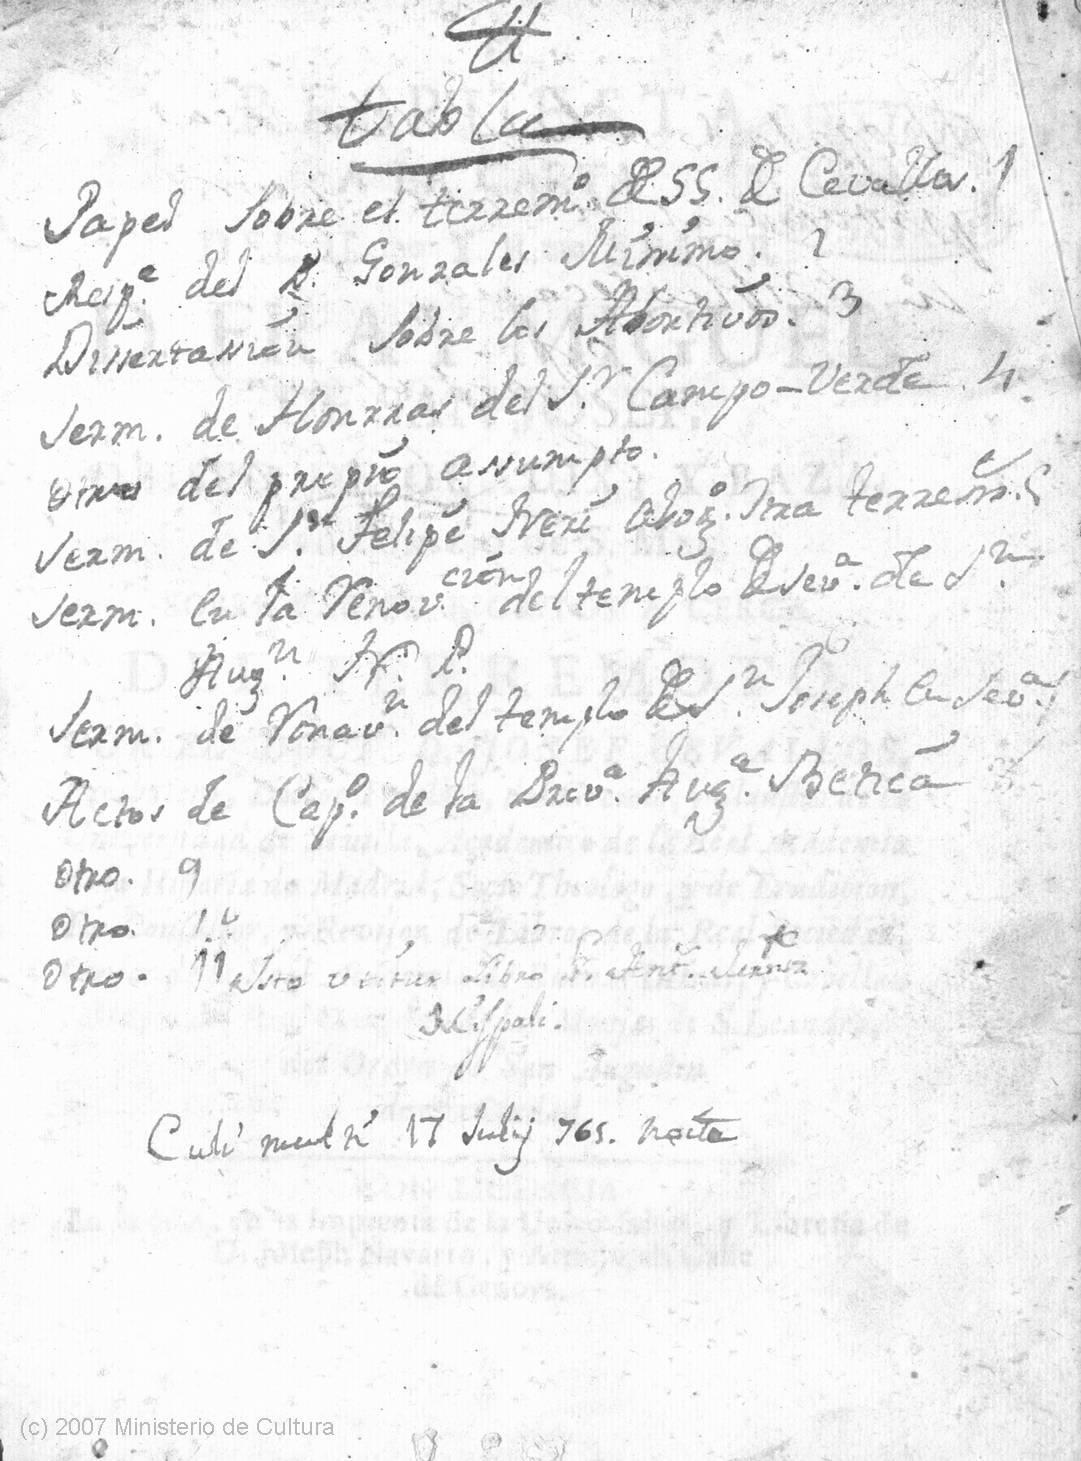 tabla
Papel sobre el terremº. de 55. de Cevallos. 1
Respª. del P. Gonzales Minimo. 2
Dissertassion sobre los Abortivos. 3
Serm. de Honrras del Sr. Campo-Verde. 4
otros del propio assumpto.
Serm. de Sn. Felipe Neri abogº. ntra terrem. 5
Serm. en la Renovcion. del templo de Sevª. de Sn.
Augn. N. P. 6
Serm. de Renovn. del templo de Sn. Joseph en Sevª. 7
Actos de Capº. de la Provª. Augª. Betica 8
Otro. 9
Otro 10
Otro. 11 Isto utitur Libro F. Ant.
Hispali.
17 Julij 765. nocte
(c) 2007 Ministerio de Cultura